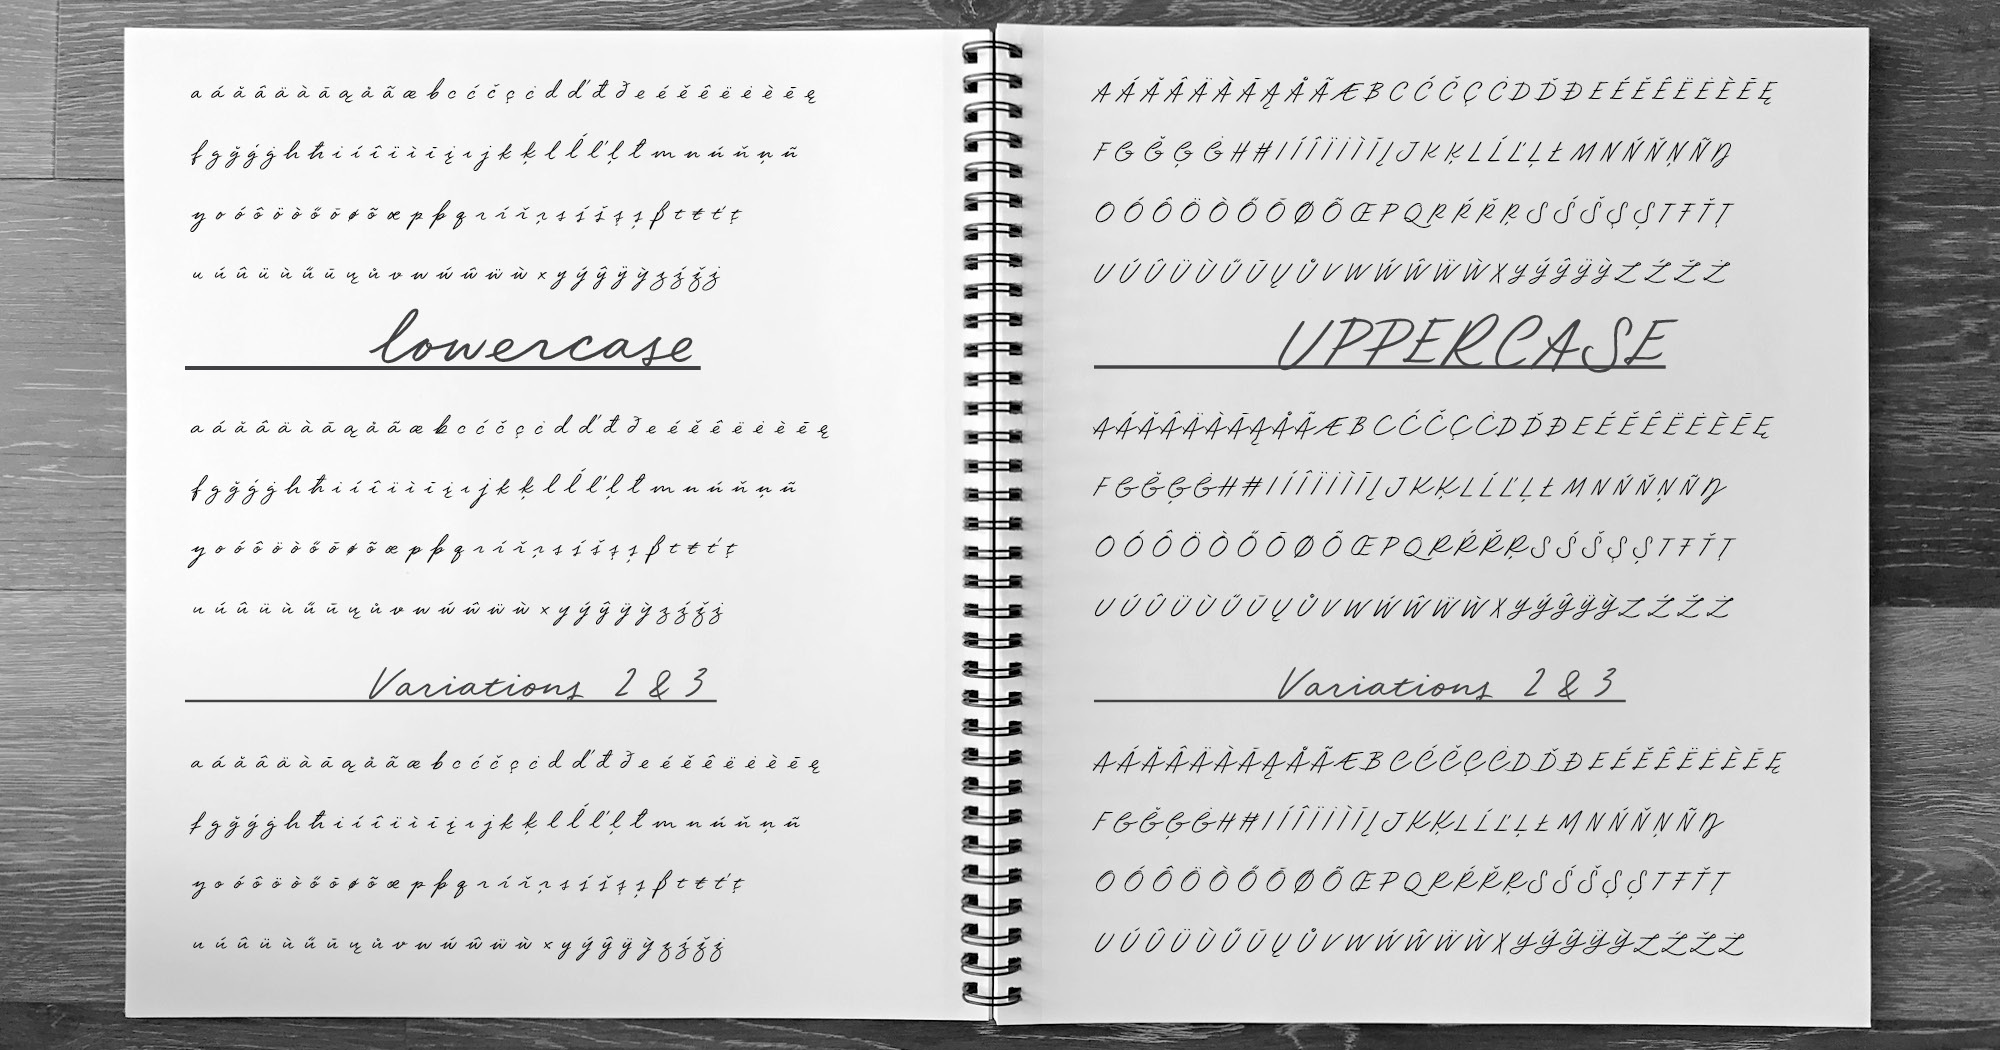 a á ă â ä à ā ą å ã æ b c ć č ç ċ d ď đ ð e é ě ê ë ė è ē ę
f g ğ ģ ġ h ħ i í î ï ì ī į ı j k ķ l ĺ ľ ļ ł m n ń ň ņ ñ
ŋ o ó ô ö ò ő ō ø õ œ p þ q r ŕ ř ŗ s ś š ş ș ß t ŧ ť ţ
u ú û ü ù ű ū ų ů v w ẃ ŵ ẅ ẁ x y ý ŷ ÿ ỳ z ź ž ż
lowercase
a á ă â ä à ā ą å ã æ b c ć č ç ċ d ď đ ð e é ě ê ë ė è ē ę
f g ğ ģ ġ h ħ i í î ï ì ī į ı j k ķ l ĺ ľ ļ ł m n ń ň ņ ñ
ŋ o ó ô ö ò ő ō ø õ œ p þ q r ŕ ř ŗ s ś š ş ș ß t ŧ ť ţ
u ú û ü ù ű ū ų ů v w ẃ ŵ ẅ ẁ x y ý ŷ ÿ ỳ z ź ž ż
Variations 2 & 3
a á ă â ä à ā ą å ã æ b c ć č ç ċ d ď đ ð e é ě ê ë ė è ē ę
f g ğ ģ ġ h ħ i í î ï ì ī į ı j k ķ l ĺ ľ ļ ł m n ń ň ņ ñ
ŋ o ó ô ö ò ő ō ø õ œ p þ q r ŕ ř ŗ s ś š ş ș ß t ŧ ť ţ
u ú û ü ù ű ū ų ů v w ẃ ŵ ẅ ẁ x y ý ŷ ÿ ỳ z ź ž ż
A Á Ă Â Ä À Ā Ą Å Ã Æ B C Ć Č Ç Ċ D Ď Đ E É Ě Ê Ë Ė È Ē Ę
F G Ğ Ģ Ġ H Ħ I Í Î Ï İ Ì Ī Į J K Ķ L Ĺ Ľ Ļ Ł M N Ń Ň Ņ Ñ Ŋ
O Ó Ô Ö Ò Ő Ō Ø Õ Œ P Q R Ŕ Ř Ŗ S Ś Š Ş Ș T Ŧ Ť Ţ
U Ú Û Ü Ù Ű Ū Ų Ů V W Ẃ Ŵ Ẅ Ẁ X Y Ý Ŷ Ÿ Ỳ Z Ź Ž Ż
UPPERCASE
A Á Ă Â Ä À Ā Ą Å Ã Æ B C Ć Č Ç Ċ D Ď Đ E É Ě Ê Ë Ė È Ē Ę
F G Ğ Ģ Ġ H Ħ I Í Î Ï İ Ì Ī Į J K Ķ L Ĺ Ľ Ļ Ł M N Ń Ň Ņ Ñ Ŋ
O Ó Ô Ö Ò Ő Ō Ø Õ Œ P Q R Ŕ Ř Ŗ S Ś Š Ş Ș T Ŧ Ť Ţ
U Ú Û Ü Ù Ű Ū Ų Ů V W Ẃ Ŵ Ẅ Ẁ X Y Ý Ŷ Ÿ Ỳ Z Ź Ž Ż
Variations 2 & 3
A Á Ă Â Ä À Ā Ą Å Ã Æ B C Ć Č Ç Ċ D Ď Đ E É Ě Ê Ë Ė È Ē Ę
F G Ğ Ģ Ġ H Ħ I Í Î Ï İ Ì Ī Į J K Ķ L Ĺ Ľ Ļ Ł M N Ń Ň Ņ Ñ Ŋ
O Ó Ô Ö Ò Ő Ō Ø Õ Œ P Q R Ŕ Ř Ŗ S Ś Š Ş Ș T Ŧ Ť Ţ
U Ú Û Ü Ù Ű Ū Ų Ů V W Ẃ Ŵ Ẅ Ẁ X Y Ý Ŷ Ÿ Ỳ Z Ź Ž Ż